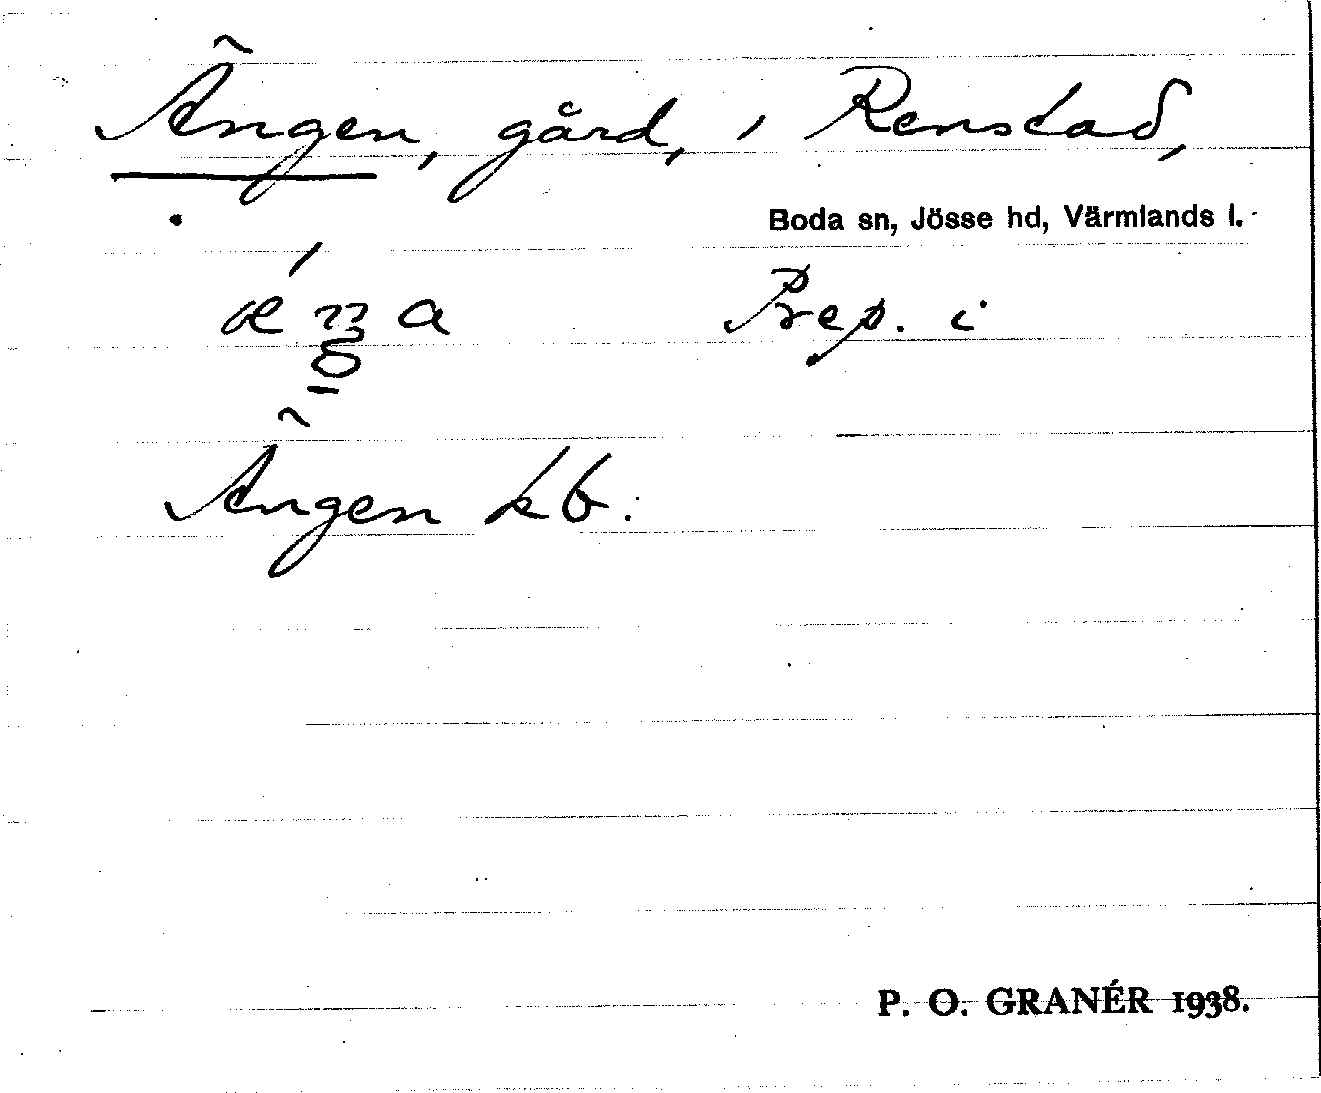 Ängen, gård, i Renstad,
Boda sn, Jösse hd, Värmlands l.
Prep. i
Ängen kb.
P. O. GRANÉR 1938.